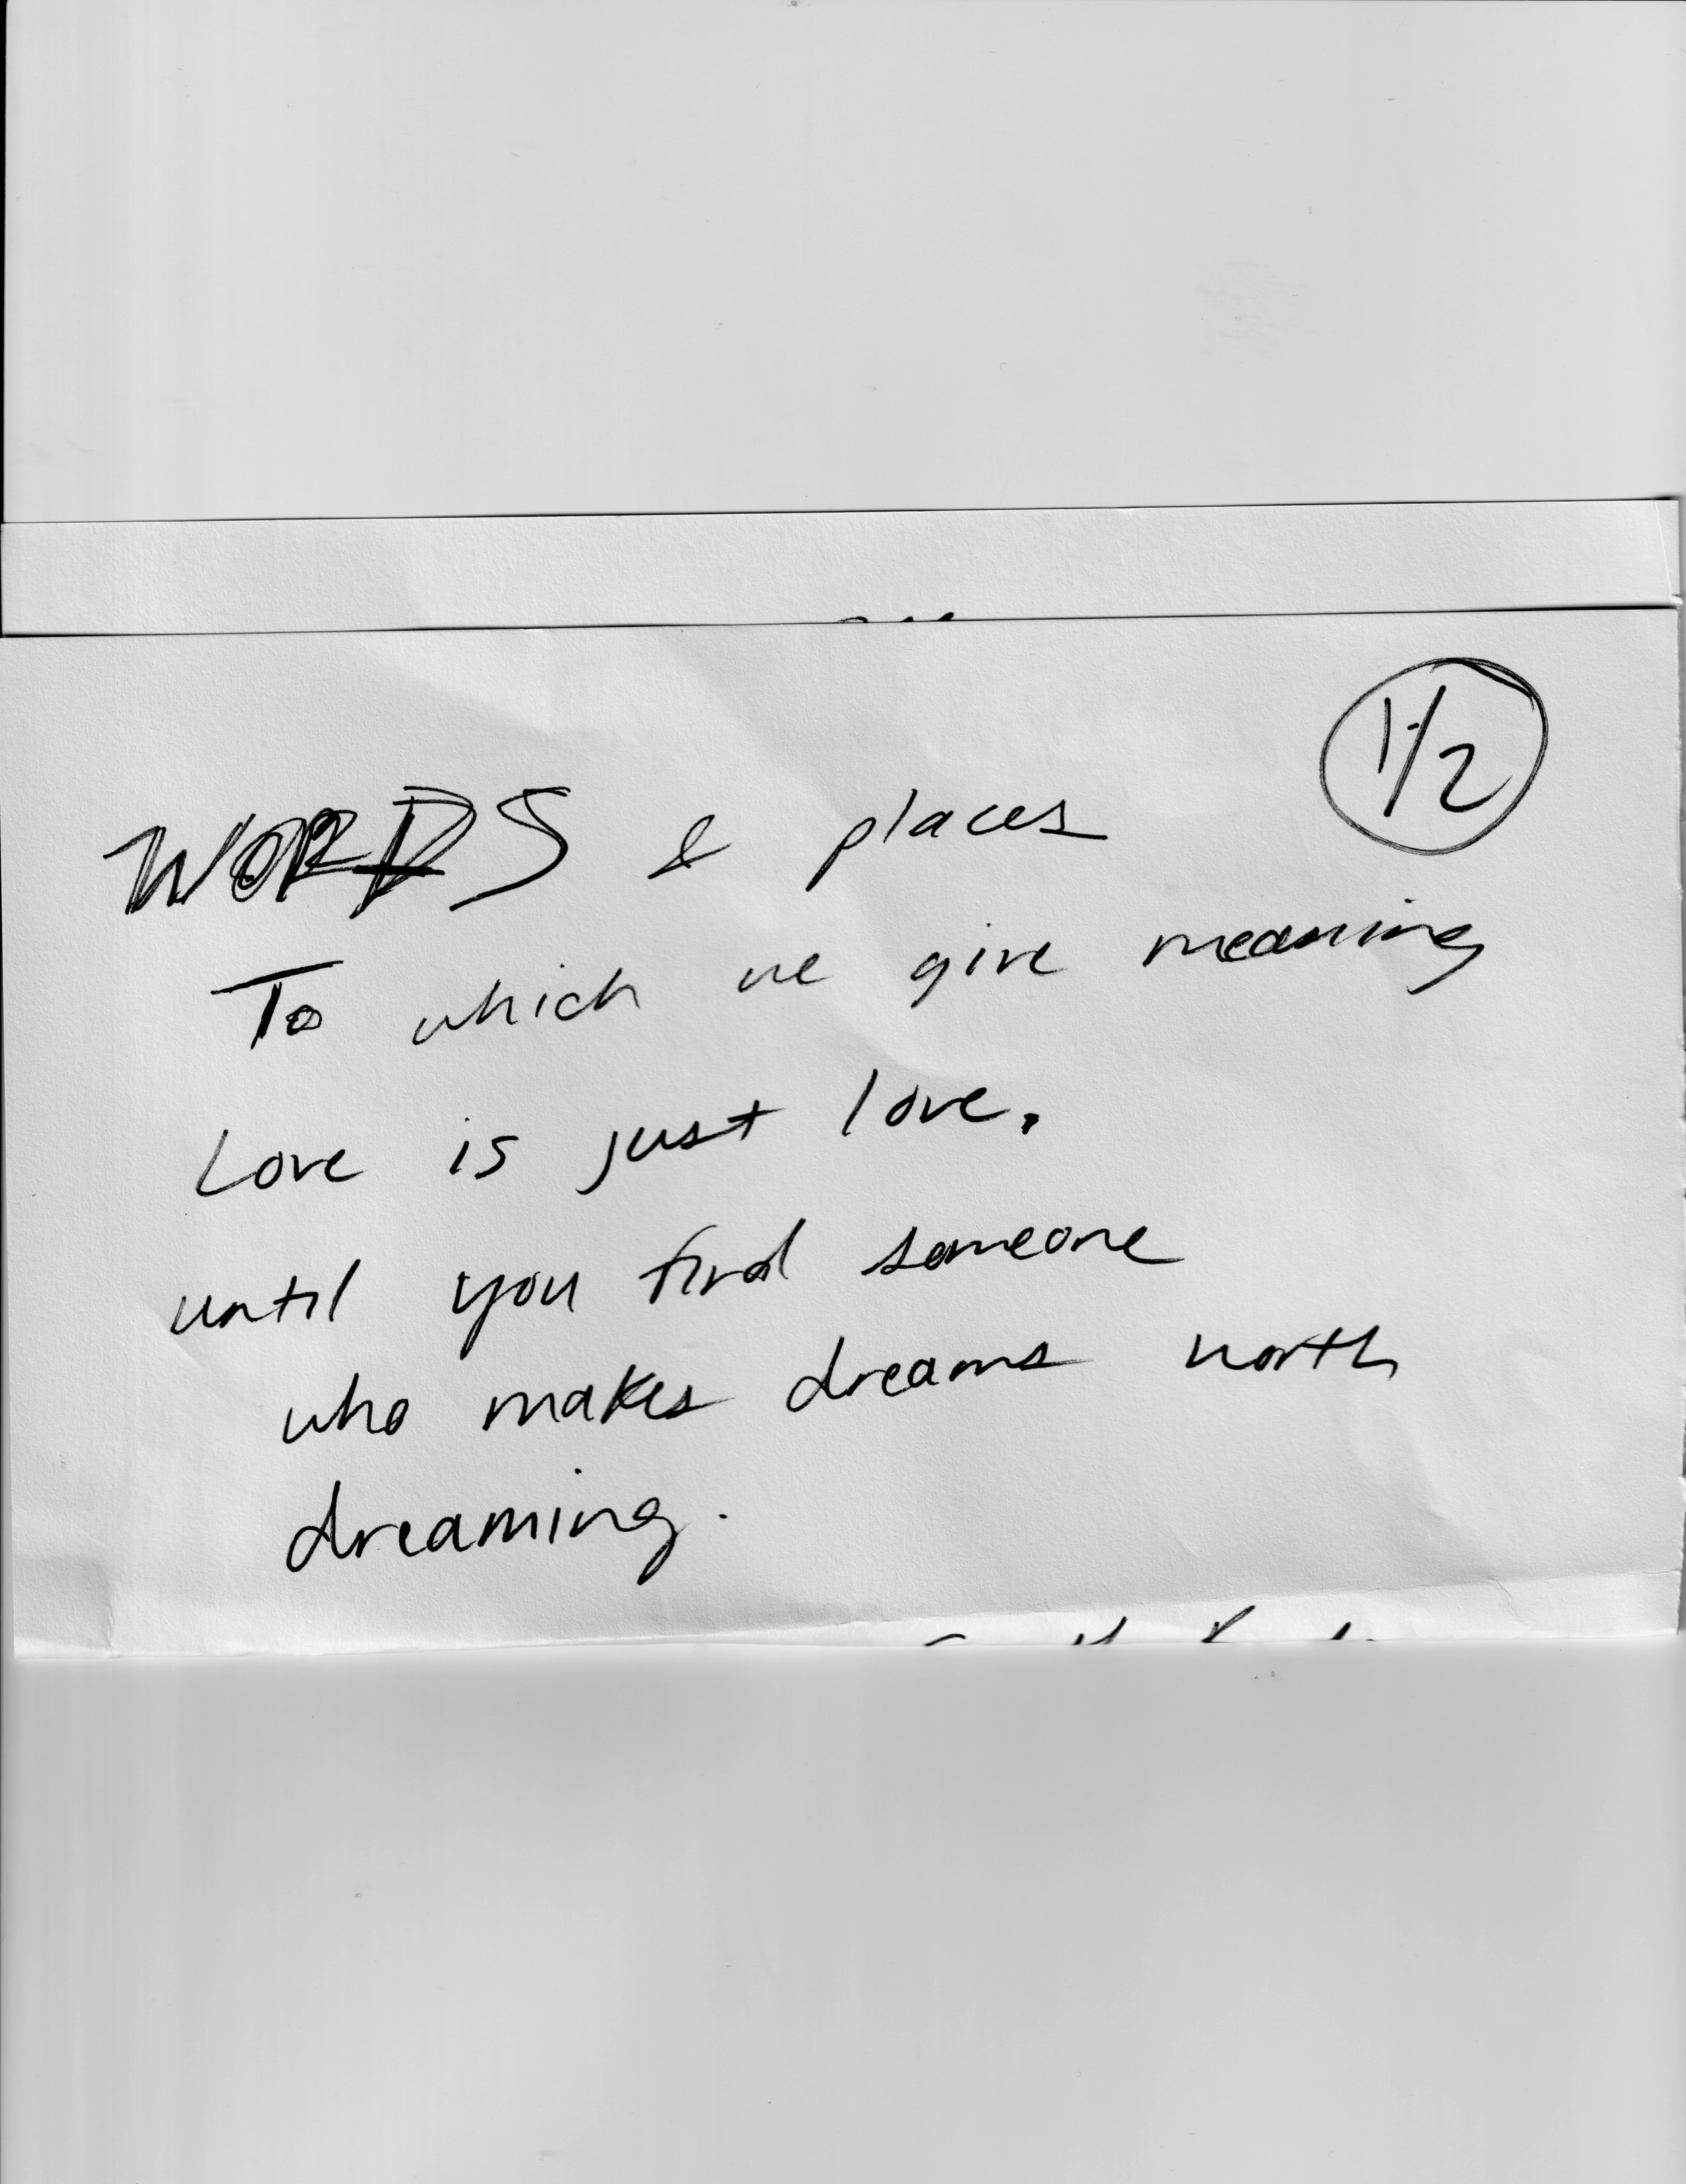 1/2
WORDS & places
To which we give meaning
Love is just love.
until you find someone
who makes dreams worth
dreaming.